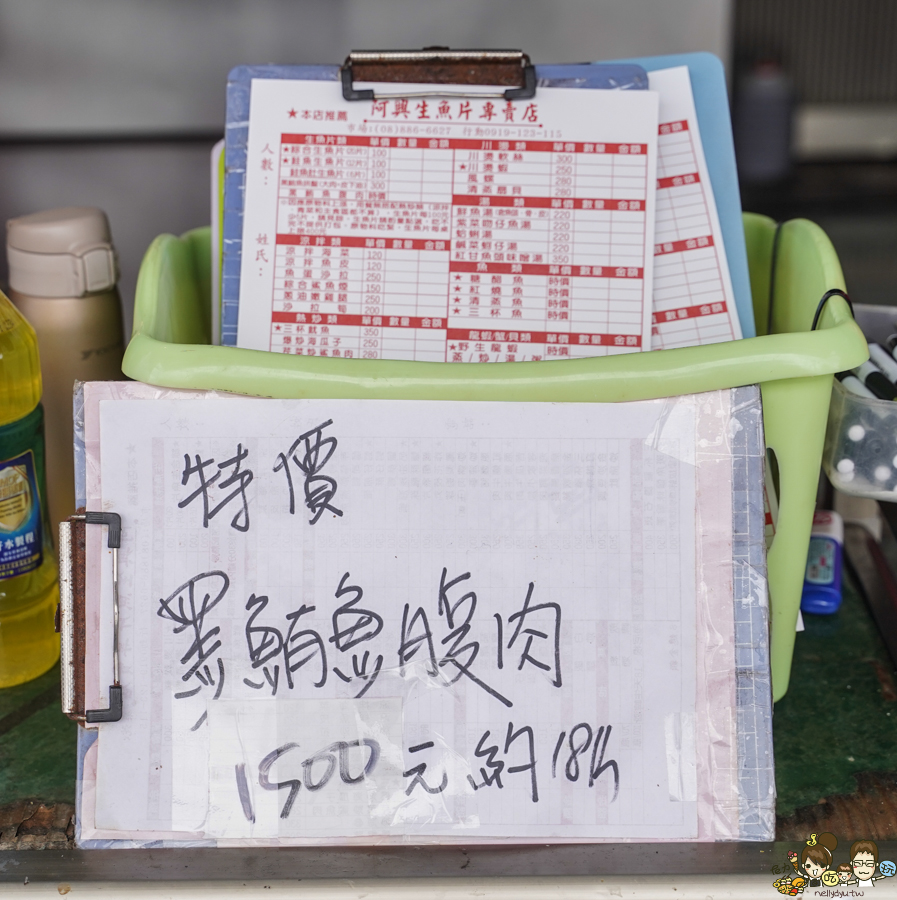 阿興生魚片專賣店
★本店推薦
市場:(08)886-6627 行動0919-123-115
人數:
姓氏:
生魚片類 單價 數量 金額
★綜合生魚片 100
★鮭魚生魚片 100
鮭魚肚生魚片 100
300
黑鮪魚壽肉 時價
涼拌類 單價 數量 金額
涼拌海菜 120
涼拌魚皮 120
魚蛋沙拉 250
綜合鯊魚煙 150
蔥油嫩雞腿 250
沙拉筍 200
熱炒類 單價 數量 金額
★三杯魷魚 350
爆炒海瓜子 250
芹菜炒鯊魚肉 280
川燙類 單價 數量 金額
川燙軟絲 300
★川燙蝦 250
風螺 280
清蒸扇貝 280
湯類 單價 數量 金額
鮮魚湯 220
紫菜吻仔魚湯 220
蛤蜊湯 220
鹹菜蚵仔湯 220
紅甘魚頭味噌湯 350
魚類 單價 數量 金額
★糖醋魚 時價
★紅燒魚 時價
★清蒸魚 時價
★三杯魚 時價
龍蝦/蟹/貝類 單價 數量 金額
★野生龍蝦 時價
蒸/炒/湯/粥
數量 金額
特價
黑鮪魚腹肉
1500元約18片
nellydyu.tw